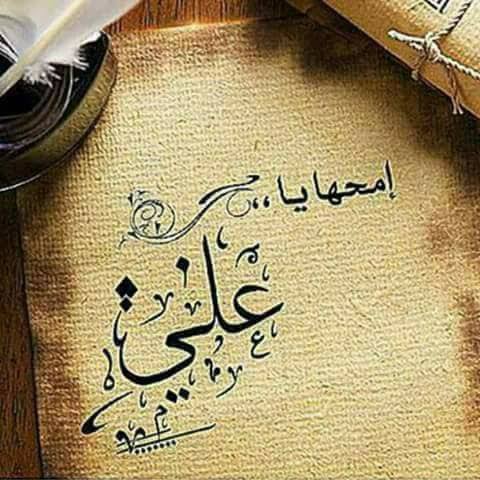 إمحها يا ،،
علي